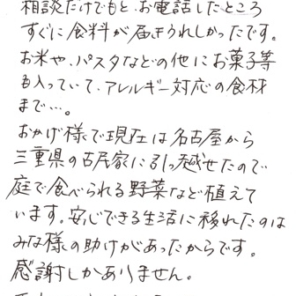 相談だけでもと、お電話したところ
すぐに食料が届きうれしかったです。
お米や、パスタなどの他にお菓子等
も入っていて、アレルギー対応の食材
まで…。
おかげ様で現在は名古屋から
三重県の古民家に引っ越せたので
庭で食べられる野菜など植えて
います。安心できる生活に移れたのは
みな様の助けがあったからです。
感謝しかありません。